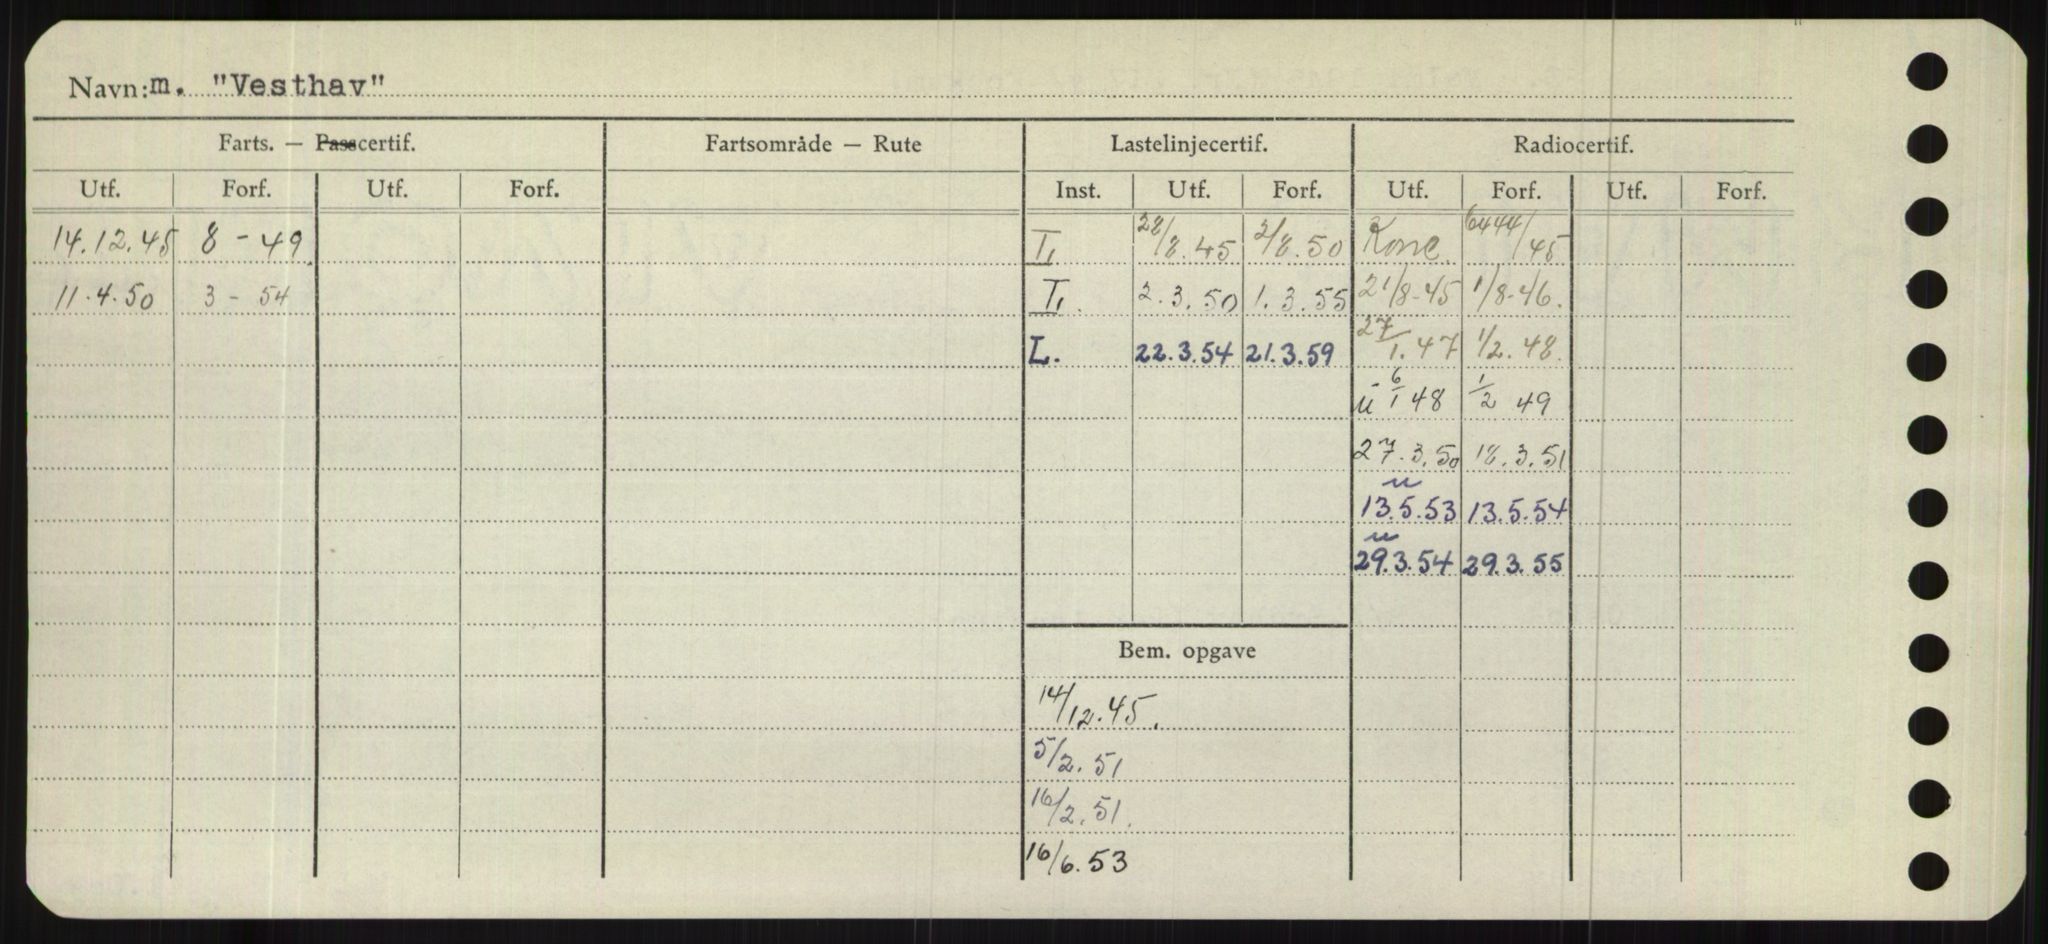 Navn: m. "Vesthav"
Farts. — Passcertif. Fartsområde — Rute Lastelinjecertif. Radiocertif.
Utf. Forf. Utf. Forf. Inst. Utf. Forf. Utf. Forf. Utf. Forf.
14.12.45 8 - 49 28/8.45 2/8.50 6444/45
11.4.50 3 - 54 2.3.50 1.3.55 21/8-45 1/8-46.
L. 22.3.54 21.3.59 27/1.47 1/2.48.
u 6/1 48 1/2 49
27.3.50 18.3.51
u
13.5.53 13.5.54
u
29.3.54 29.3.55
Bem. opgave
14/12.45.
5/2.51
16/2.51.
16/6.53